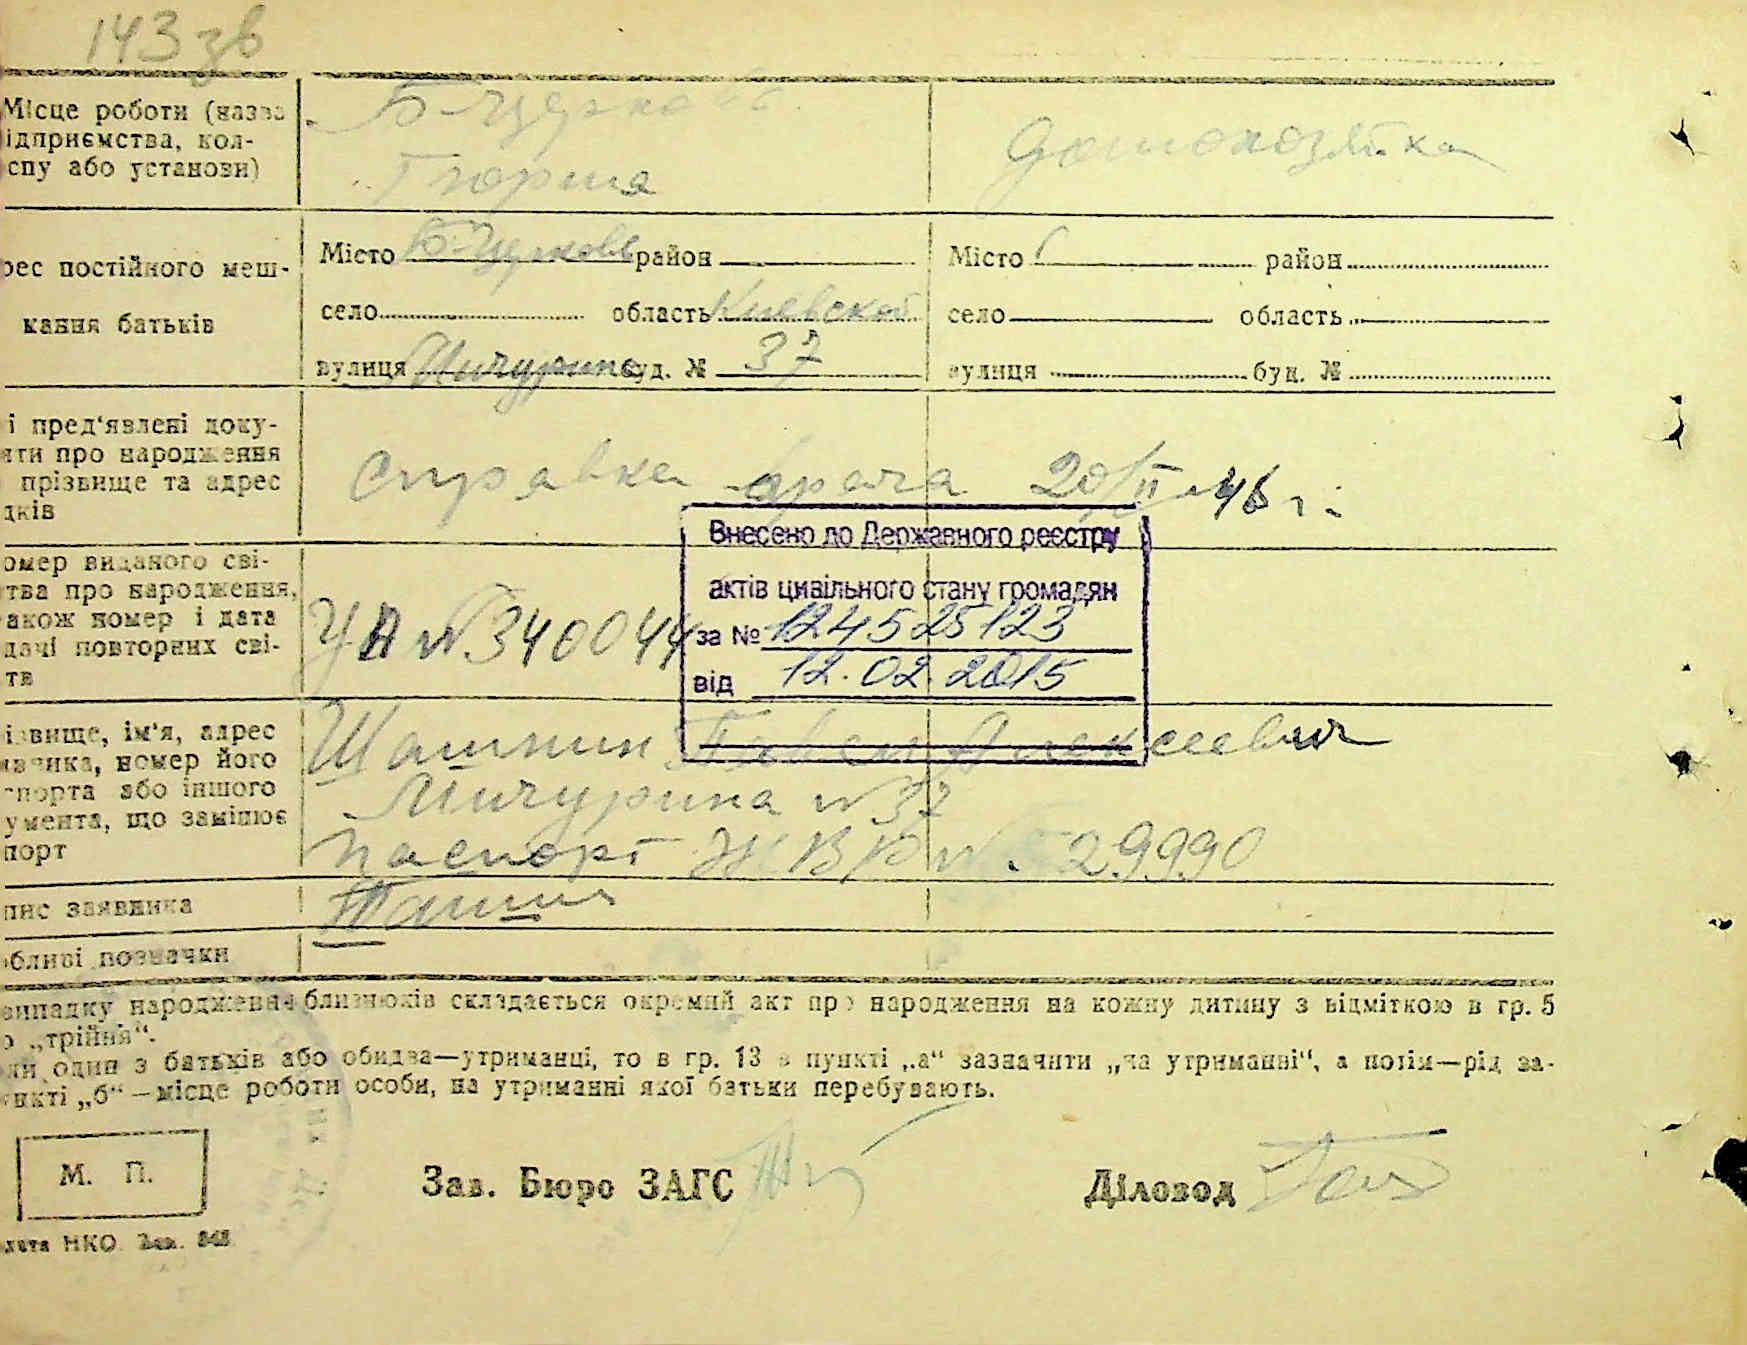 143 зв
Місце роботи (назва
ідприємства, кол-
спу або установи)
Б-Церковь
Тюрма
домохозяйка
рес постійного меш-
кання батьків
Місто Б-Церковь район
село область Киевской
вулиця Мичурина буд. № 37
Місто район
село область
вулиця буд. №
і пред'явлені доку-
нти про народження
прізвище та адрес
дків
Справка врача 20/II-46 г.
омер виданого сві-
тва про народження,
акож номер і дата
дачі повторних сві-
тв
УА № 340044
Внесено до Державного реєстру
актів цивільного стану громадян
за № 124525123
від 12.02.2015
ізвище, ім'я, адрес
явника, номер його
спорта або іншого
умента, що замінює
порт
Шашкин Павел Алексеевич
Мичурина № 37
паспорт № 29990
пис заявника
обливі позначки
випадку народження близнюків складається окремий акт про народження на кожну дитину з відміткою в гр. 5
о „трійня“.
ли один з батьків або обидва—утриманці, то в гр. 13 в пункті „а“ зазначити „на утриманні“, а потім—рід за-
ункті „б“ —місце роботи особи, на утриманні якої батьки перебувають.
М. П.
Зав. Бюро ЗАГС
Діловод
НКО. Зак. 848